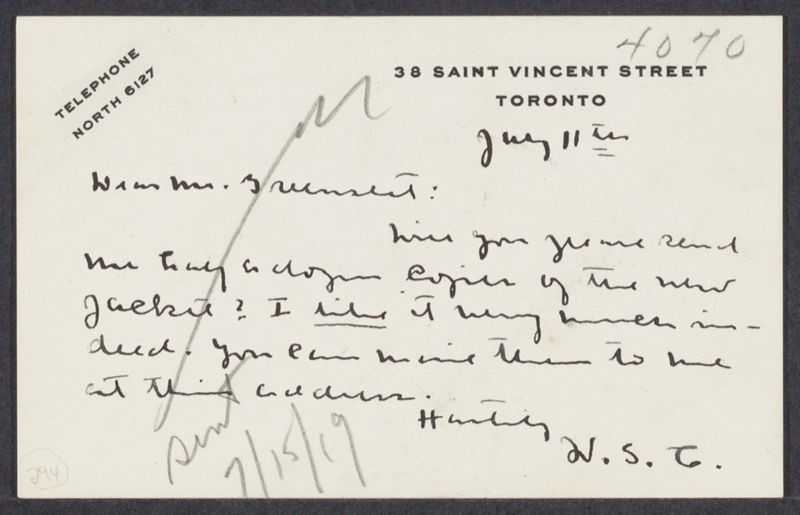 4070
TELEPHONE
NORTH 6127
38 SAINT VINCENT STREET
TORONTO
July 11th
Dear Mr. Greenslet:
Will you please send
me half a dozen copies of the new
Jacket? I like it very much in-
deed. You can mail them to me
at this address.
Heartily
W. S. C.
Sent
7/15/19
294